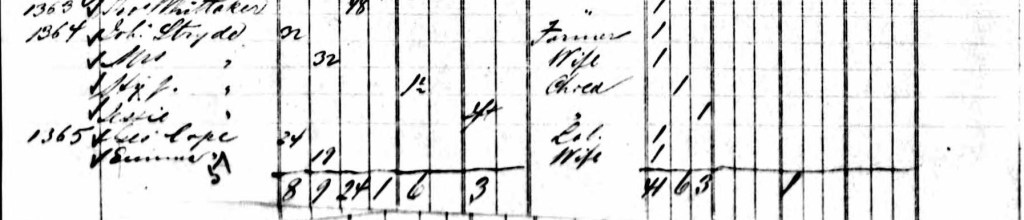 1363 Whittaker 48 " 1
1364 Joh. Stryde 32 Farmer 1
Mrs " 32 Wife 1
" 12 Child 1
Jessie " " 1
1365 Cope 24 Lab. 1
" 19 Wife 1
8 9 24 1 6 3 41 6 3 1